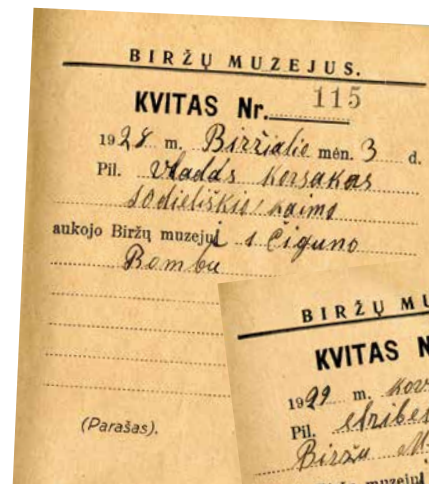 BIRŽŲ MUZEJUS.
KVITAS Nr. 115
1928 m. Birželio mėn. 3 d.
Pil. Vladas Korsakas
Sodieliškio kaimo
aukojo Biržų muzejui 1 Čiguno
Bombu
(Parašas).
BIRŽŲ MU
KVITAS N
1929 m. Kov
Pil.
Biržu M
muzejui